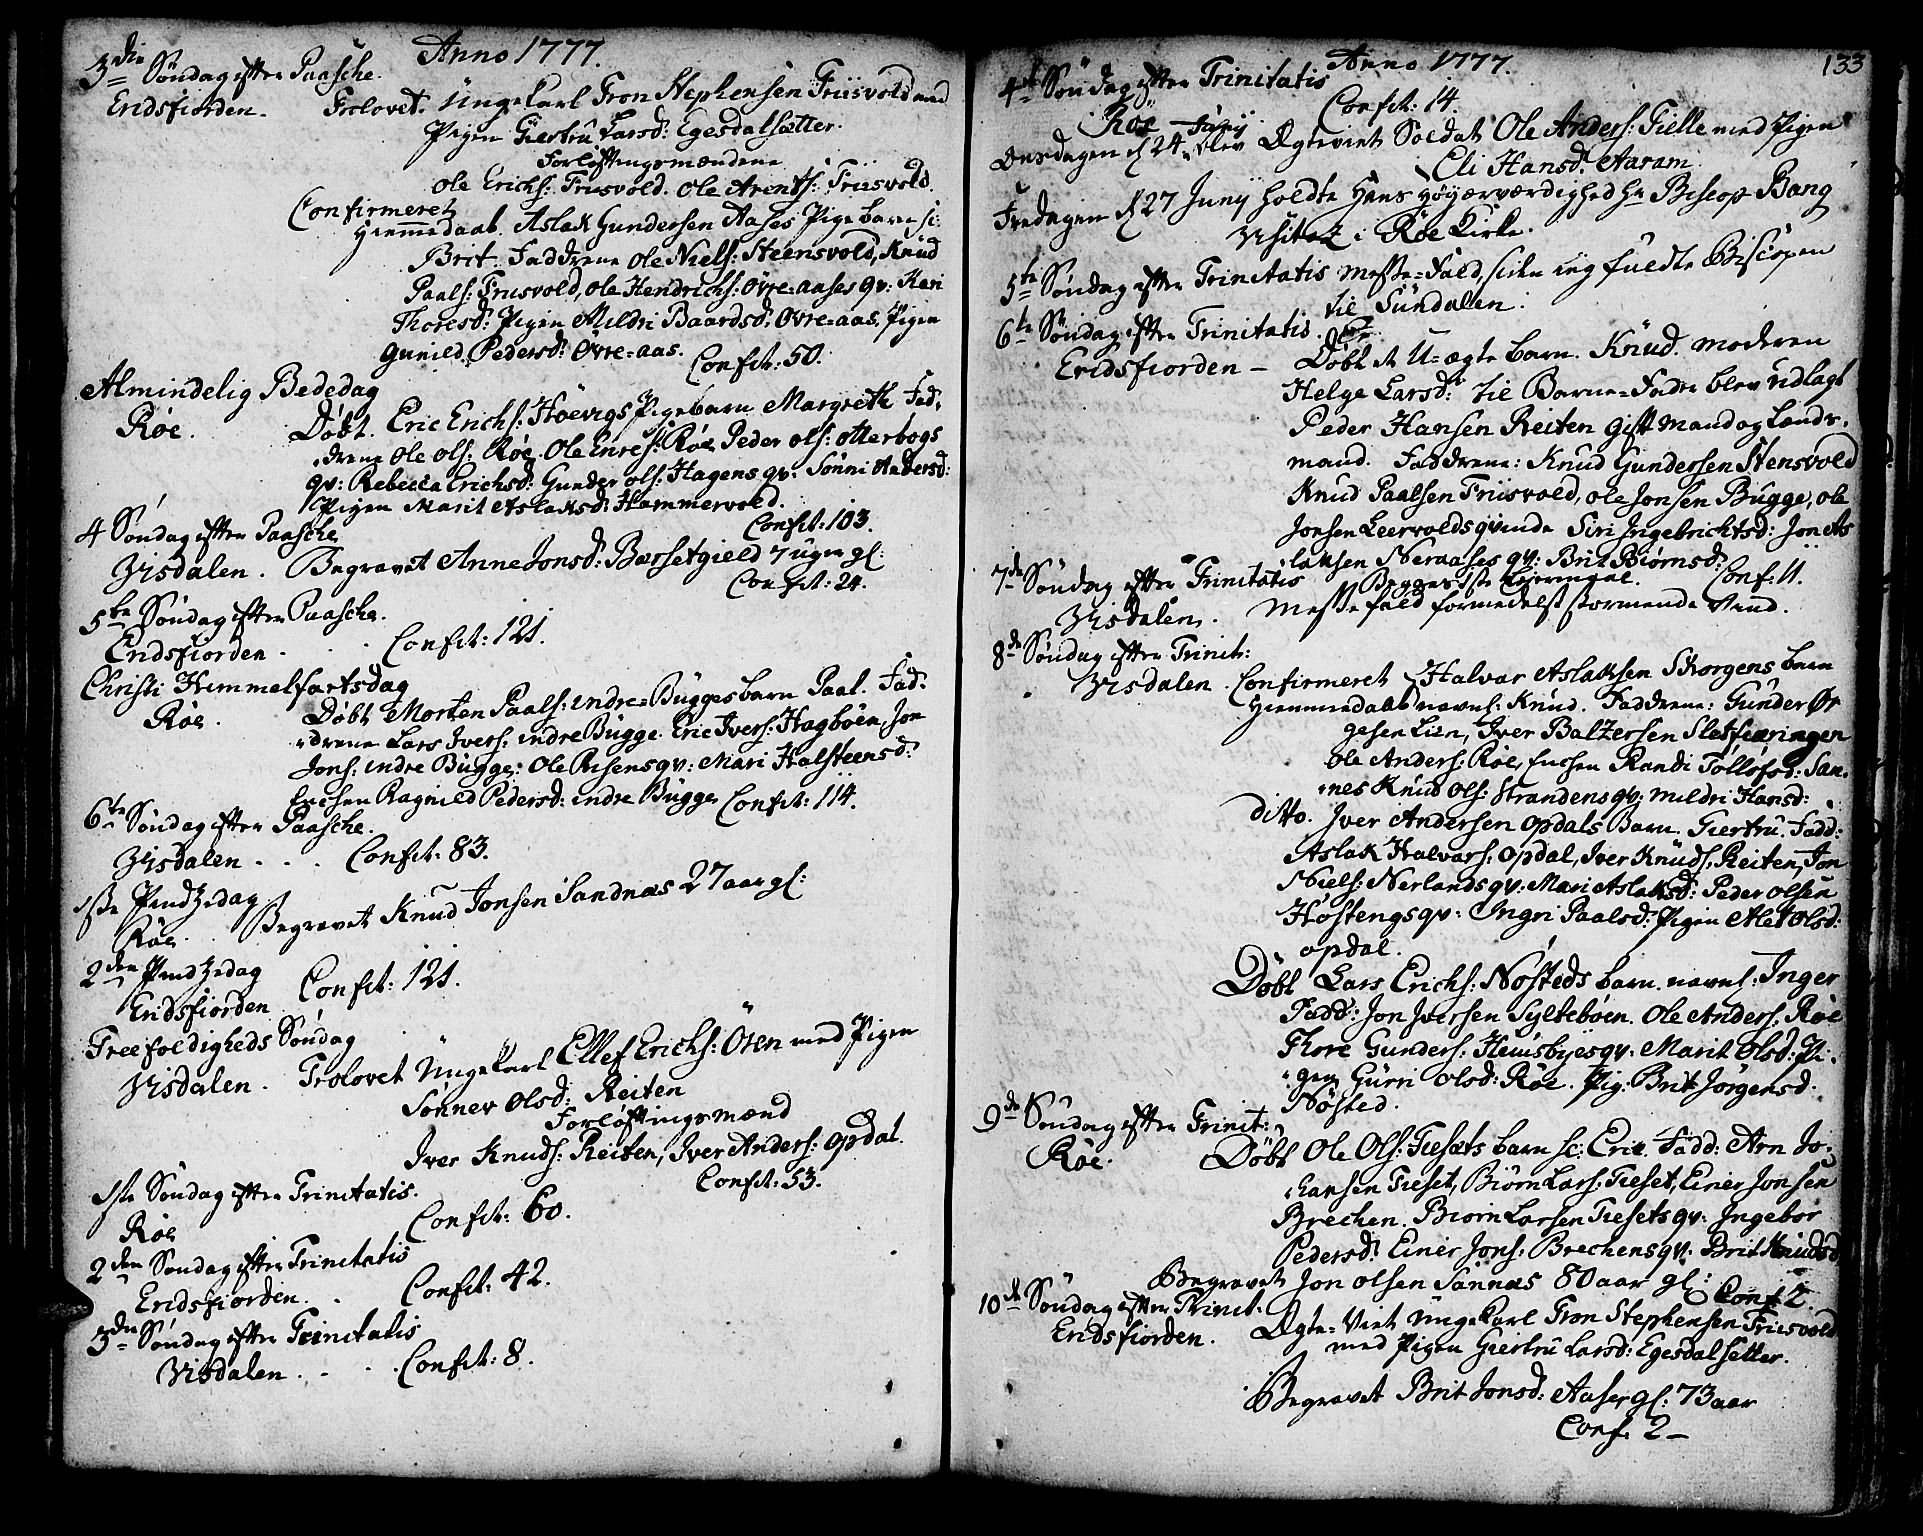 Anno 1777.
3die Søndag efter Paasche.
Eridsfiorden. Trolovet. Ungekarl Tron Stephensen Friisvold med
Pigen Giertru Larsd: Egesdalsætter.
Forløftingsmændene
Ole Erichs: Friisvold. Ole Arents: Friisvold.
Confirmeret
Hiemmedaab. Aslak Gundersen Aases Pigebarn
Brit. Faddrene Ole Niels: Steensvold, Knud
Paals: Friisvold, Ole Hendrichs: Øvre=aases qv: Kari
Thoresd: Pigen Mildri Baardsd: Øvre=aas, Pigen
Gunild Pedersd: Øvre=aas. Confit: 50.
Almindelig Bededag
Røe. Døbt. Eric Erichs: Høevigs Pigebarn Margreth Fad,
drene Ole Ols: Røe. Ole Enres: Røe Peder Ols: Otterbogs
qv: Rebecca Erichsd: Gunder Ols: Hagens qv: Sønni Andersd:
Pigen Marit Aslaksd: Hammervold.
4 Søndag efter Paasche Confit: 103.
Visdalen. Begravet Anne Jonsd: Barsetgield 7 uger gl:
Confit: 24.
5te Søndag efter Paasche.
Eridsfiorden . . . Confit: 121.
Christi Himmelfartsdag
Røe. Døbt Morten Paals: indre=Bugges barn Paal. Fad,
drene Lars Ivers: indre Bugge. Eric Ivers: Hagbøen, Jon
Jons: indre Bugge; Ole Risens qv: Mari Halsteensd:
Enchen Ragnild Pedersd: indre Bugge Confit: 114.
6te Søndag efter Paasche.
Visdalen . . . Confit: 83.
1ste Pindzedag
Røe. Begravet Knud Jonsen Sandnæs 27 aar gl:
2den Pindzedag
Eridsfiorden Confit: 121.
Treefoldigheds Søndag
Visdalen. Trolovet Ungekarl Ellef Erichs: Øsen med Pigen
Sønnev Olsd: Reiten
Forløftingsmænd
Iver Knuds: Reiten, Iver Anders: Opdal.
Confit: 53.
1ste Søndag efter Trinitatis.
Røe Confit: 60.
2den Søndag efter Trinitatis
Eridsfiorden. . Confit: 42.
3die Søndag efter Trinitatis
Visdalen . . . Confit: 8.
Anno 1777. 133
4de Søndag efter Trinitatis
Røe Confit: 14.
Juny
Onsdagen d 24 blev Ægteviet Soldat Ole Anders: Tielle med Pigen
Eli Hansd: Aaram.
Fredagen d 27 Juny holdte Hans Høyærværdighed Hr Biscop Bang
Visitaz i Røe Kirke.
5te Søndag efter Trinitatis Messe=fald, siden ieg fuldte Biscopen
til Sundalen.
6te Søndag efter Trinitatis.
Eridsfiorden — Døbt et U=ægte barn. Knud. moderen
Helge Larsd: til Barne=Fader blev udlagt
Peder Hansen Reiten gift mand og Lands,
mand. Faddrene: Knud Gundersen Stensvold
Knud Paalsen Friisvold, Ole Jonsen Bugge, Ole
Jonsen Leervolds qvinde Siri Ingebrichtsd: Jon As
laksen Neraases qv: Brit Biørnsd:
7de Søndag efter Trinitatis Begge sidste Conf: 11.
Visdalen. Messefald formedelst stormende Vind.
8de Søndag efter Trinit:
Visdalen. Confirmeret Halvar Aslaksen Skorgens barn
Hiemmedaab navnl: Knud. Faddrene: Gunder Ør
gesen Lien, Iver Baltzersen Sletfæringen
Ole Anders: Røe, Enchen Randi Tøllofsd: San,
nes Knud Ols: Strandens qv: Mildri Hansd:
ditto. Iver Andersen Opdals Barn. Giertru. Fadd:
Aslak Halvars: Opdal, Iver Knuds: Reiten, Jon
Niels: Nerlands qv: Mari Aslaksd: Peder Olsen
Høstengs qv: Ingri Paalsd: Pigen Alet Olsd:
Opdal.
Døbt Lars Erichs: Nøsteds barn. navnl: Inger
Fadd: Jon Iversen Syltebøen. Ole Anders: Røe
Thore Gunders: Heusbyes qv: Marit Olsd: Pi,
gen Gurri Olsd: Røe. Pig: Brit Jørgensd.
Nøsted.
9de Søndag efter Trinit:
Røe. Døbt Ole Ols: Tiesets barn sc: Eric. Fadd: Arn Jo,
hansen Tieset, Biørn Lars: Tieset, Einer Jonsen
Brechen. Biørn Larsen Tiesets qv: Ingebor
Pedersd: Einer Jons: Brechens qv: Brit Knudsd
Begravet Jon Olsen Sannæs 80 aar gl:
Conf 2.
10de Søndag efter Trinit.
Eridsfiorden. Ægte=Viet Ungekarl Tron Stephensen Friisvold
med Pigen Giertru Larsd: Egesdalsetter.
Begravet Brit Jonsd: Aaser gl: 73 aar
Conf. 2 —